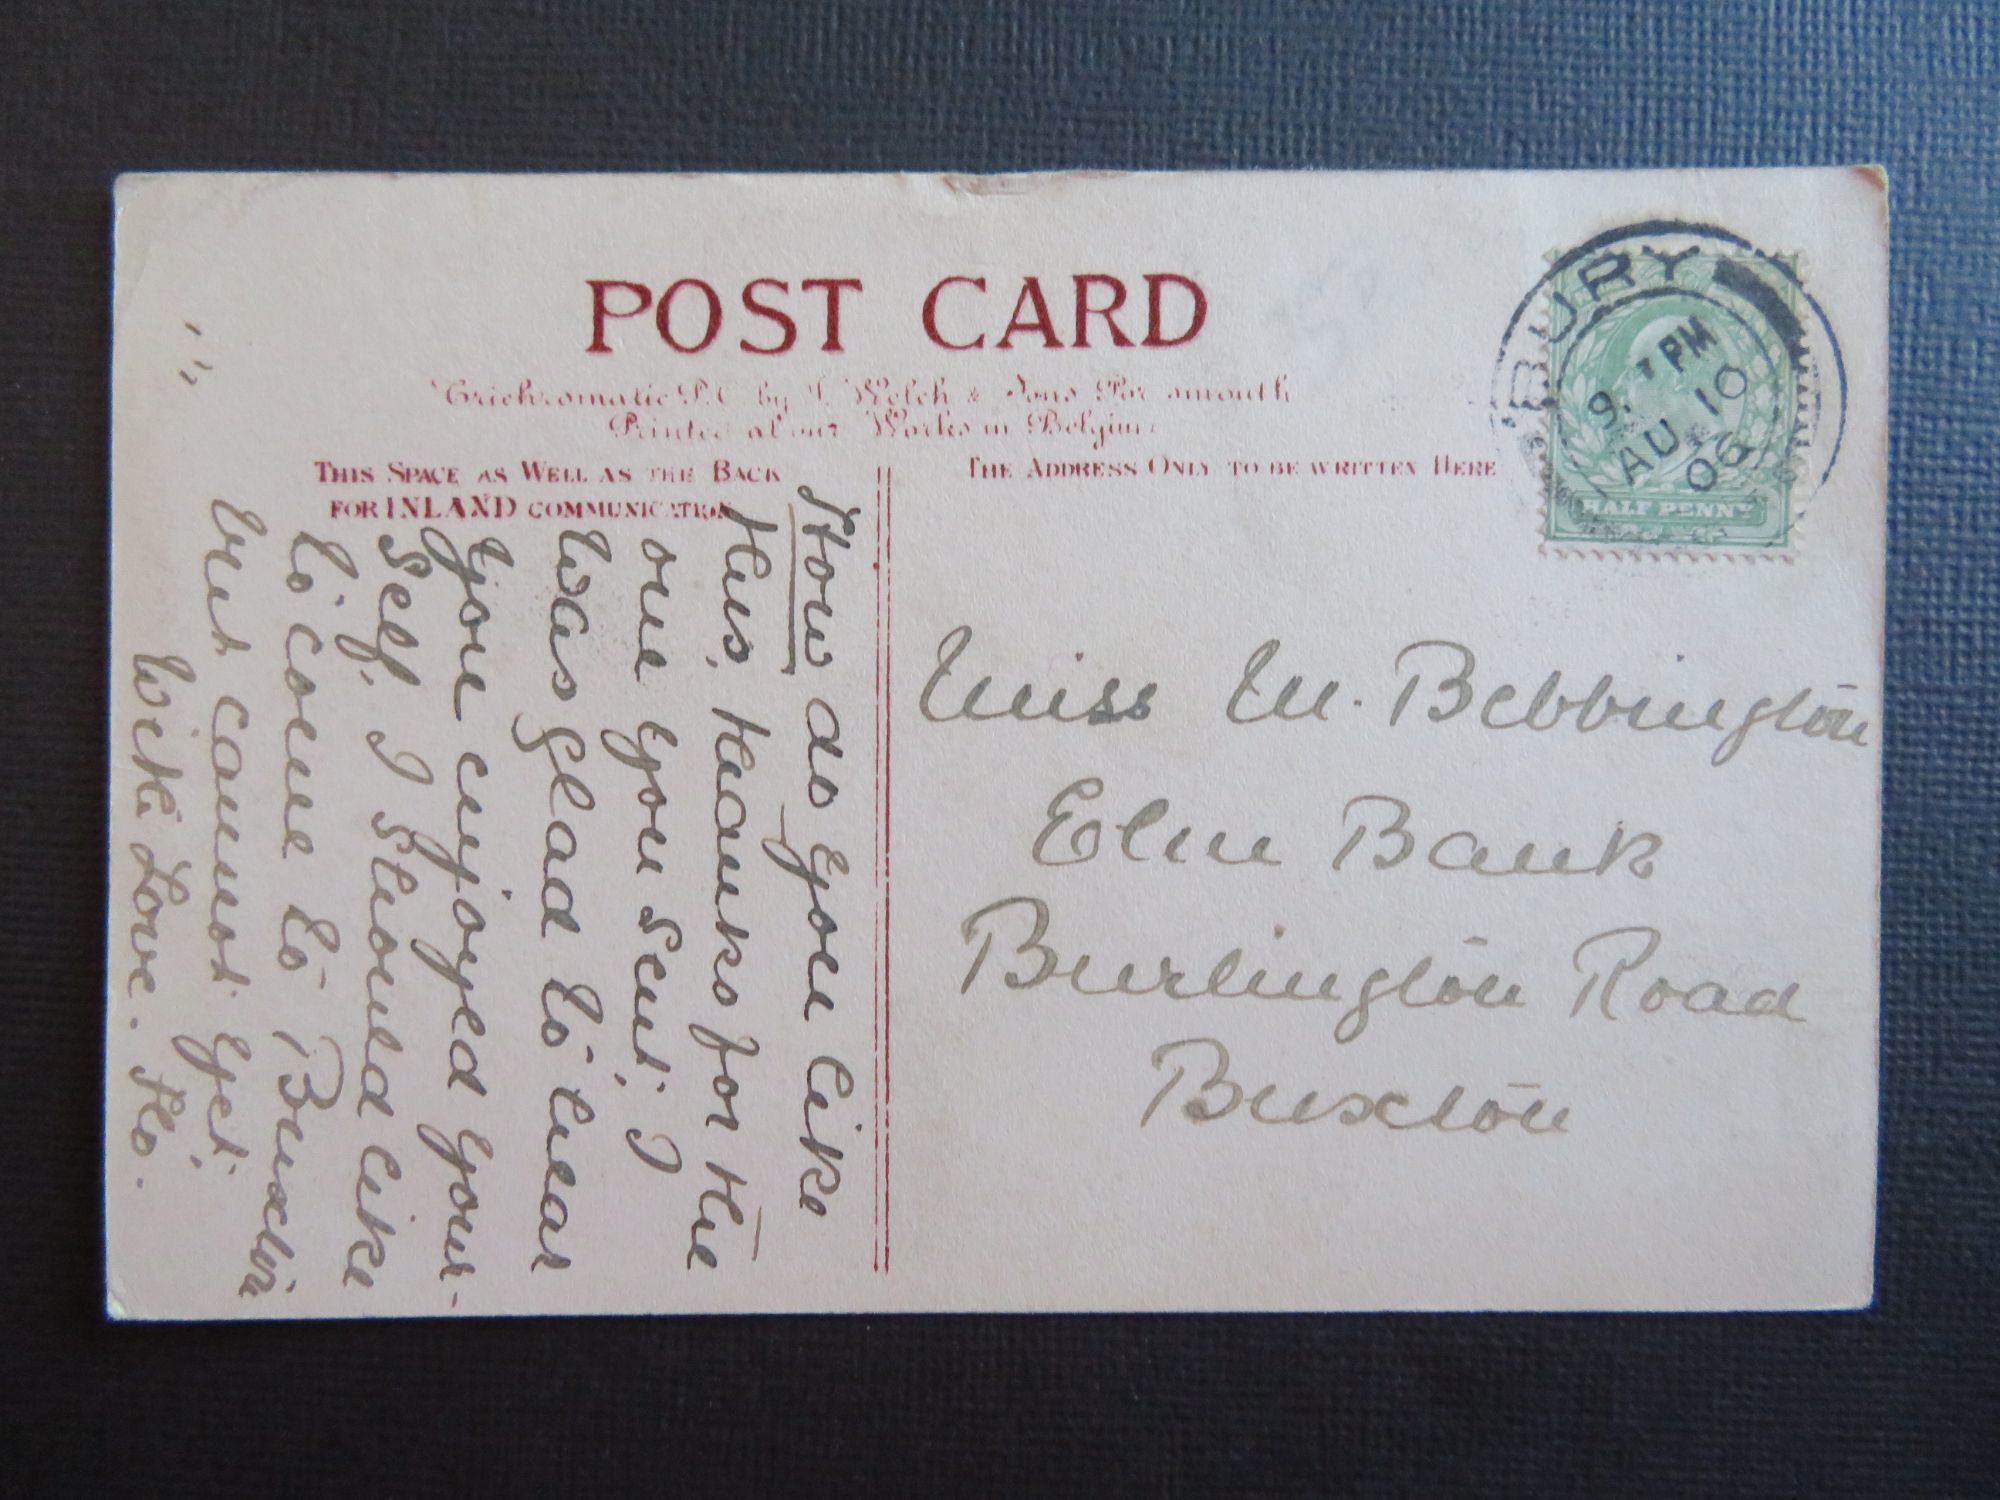 POST CARD
Trichromatic P.C. by J. Welch & Sons Portsmouth
Printed at our Works in Belgium
THIS SPACE AS WELL AS THE BACK
FOR INLAND COMMUNICATION
THE ADDRESS ONLY TO BE WRITTEN HERE
BURY
9. PM
AU 10
06
HALF PENNY
How do you like
this, thanks for the
one you sent, I
was glad to hear
you enjoyed your-
self, I should like
to come to Buxton
but cannot yet.
With Love. Flo.
Miss M. Bebbington
Elm Bank
Burlington Road
Buxton